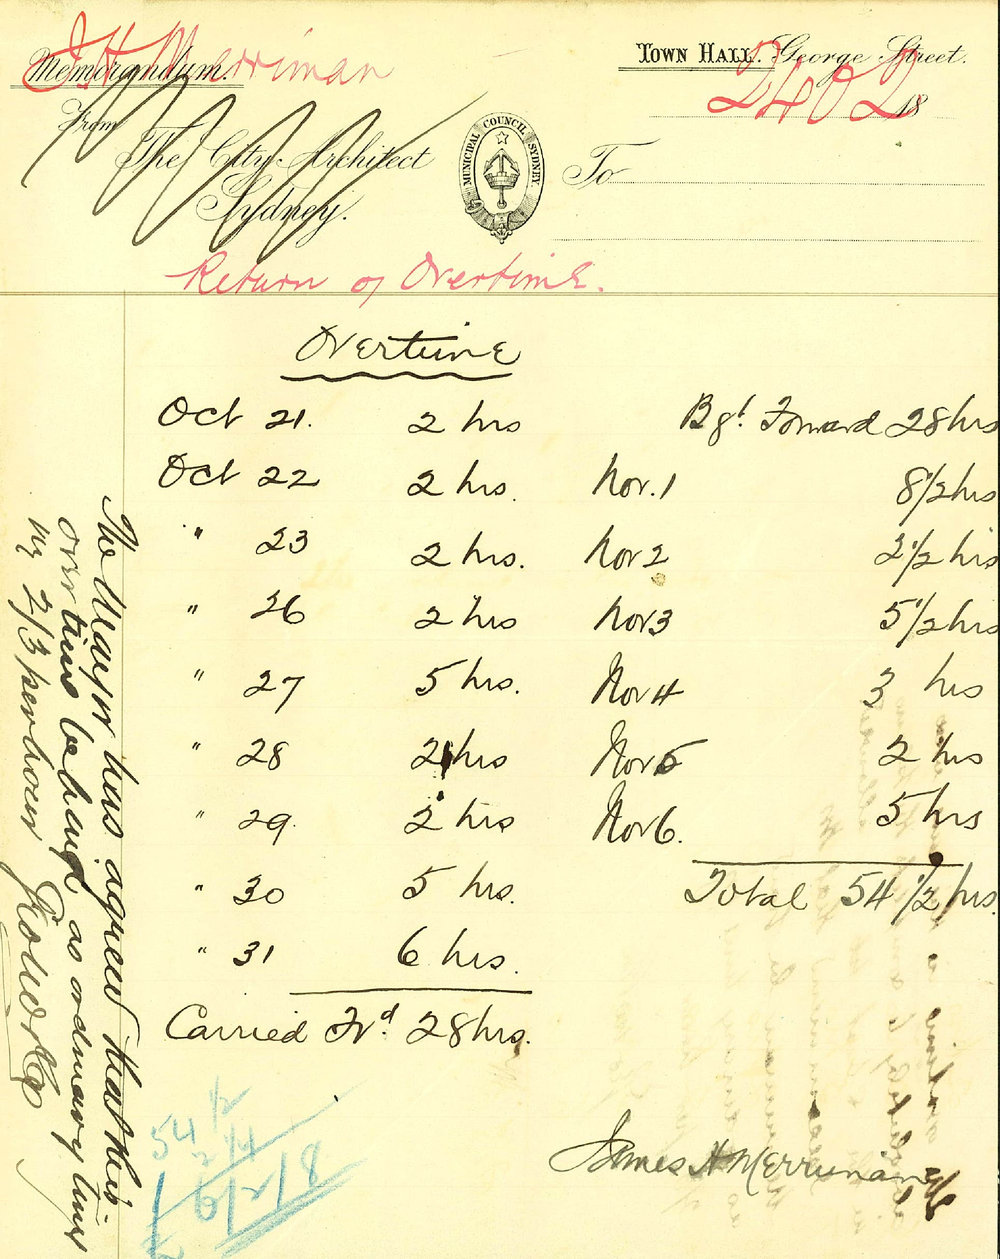 J H Merriman
Memorandum.
TOWN HALL. George Street.
2402
18
From
The City Architect
Sydney.
MUNICIPAL COUNCIL SYDNEY.
To
Return of Overtime.
Overtime
Oct 21. 2 hrs
Oct 22 2 hrs.
" 23 2 hrs.
" 26 2 hrs
" 27 5 hrs.
" 28 2 hrs
" 29. 2 hrs
" 30 5 hrs.
" 31 6 hrs.
Carried Frd 28 hrs.
Bgt Forward 28 hrs
Nov. 1 8 1/2 hrs
Nov 2 2 1/2 hrs
Nov 3 5 1/2 hrs
Nov 4 3 hrs
Nov 5 2 hrs
Nov 6. 5 hrs
Total 54 1/2 hrs.
James H Merriman
The Mayor has agreed that this
overtime be paid as ordinary time
2/3 per hour
54 1/2